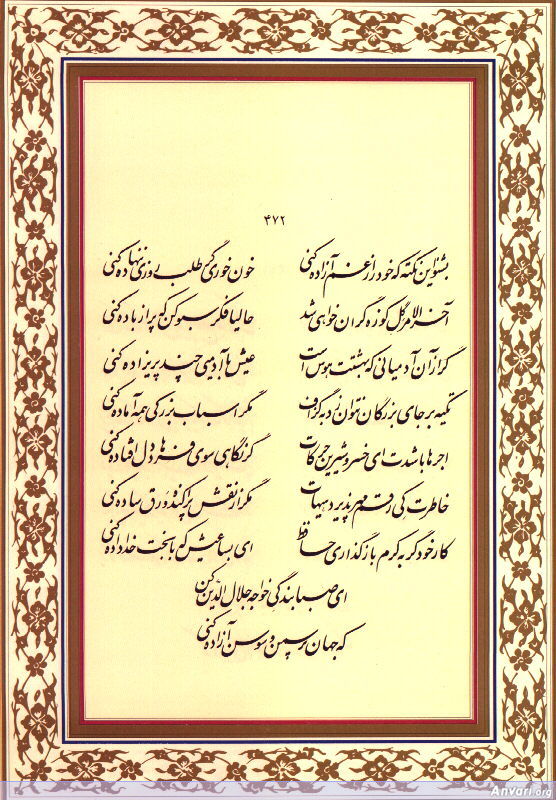 ۴۷۲
بشنو این نکته که خود را ز غم آزاده کنی خون خوری گر طلب روزی ننهاده کنی
آخرالامر گل کوزه گران خواهی شد حالیا فکر سبو کن که پر از باده کنی
گر از آن آدمیانی که بهشتت هوس است عیش با آدمیی چند پریزاده کنی
تکیه بر جای بزرگان نتوان زد به گزاف مگر اسباب بزرگی همه آماده کنی
اجرها باشدت ای خسرو شیرین حرکات گر نگاهی سوی فرهاد دل افتاده کنی
خاطرت کی رقم مهر پذیرد هیهات مگر از نقش پراکنده ورق ساده کنی
کار خود گر به کرم بازگذاری حافظ ای بسا عیش که با بخت خداداده کنی
ای صبا بندگی خواجه جلال الدین کن
که جهان پر سمن و سوسن آزاده کنی
Anvari.org